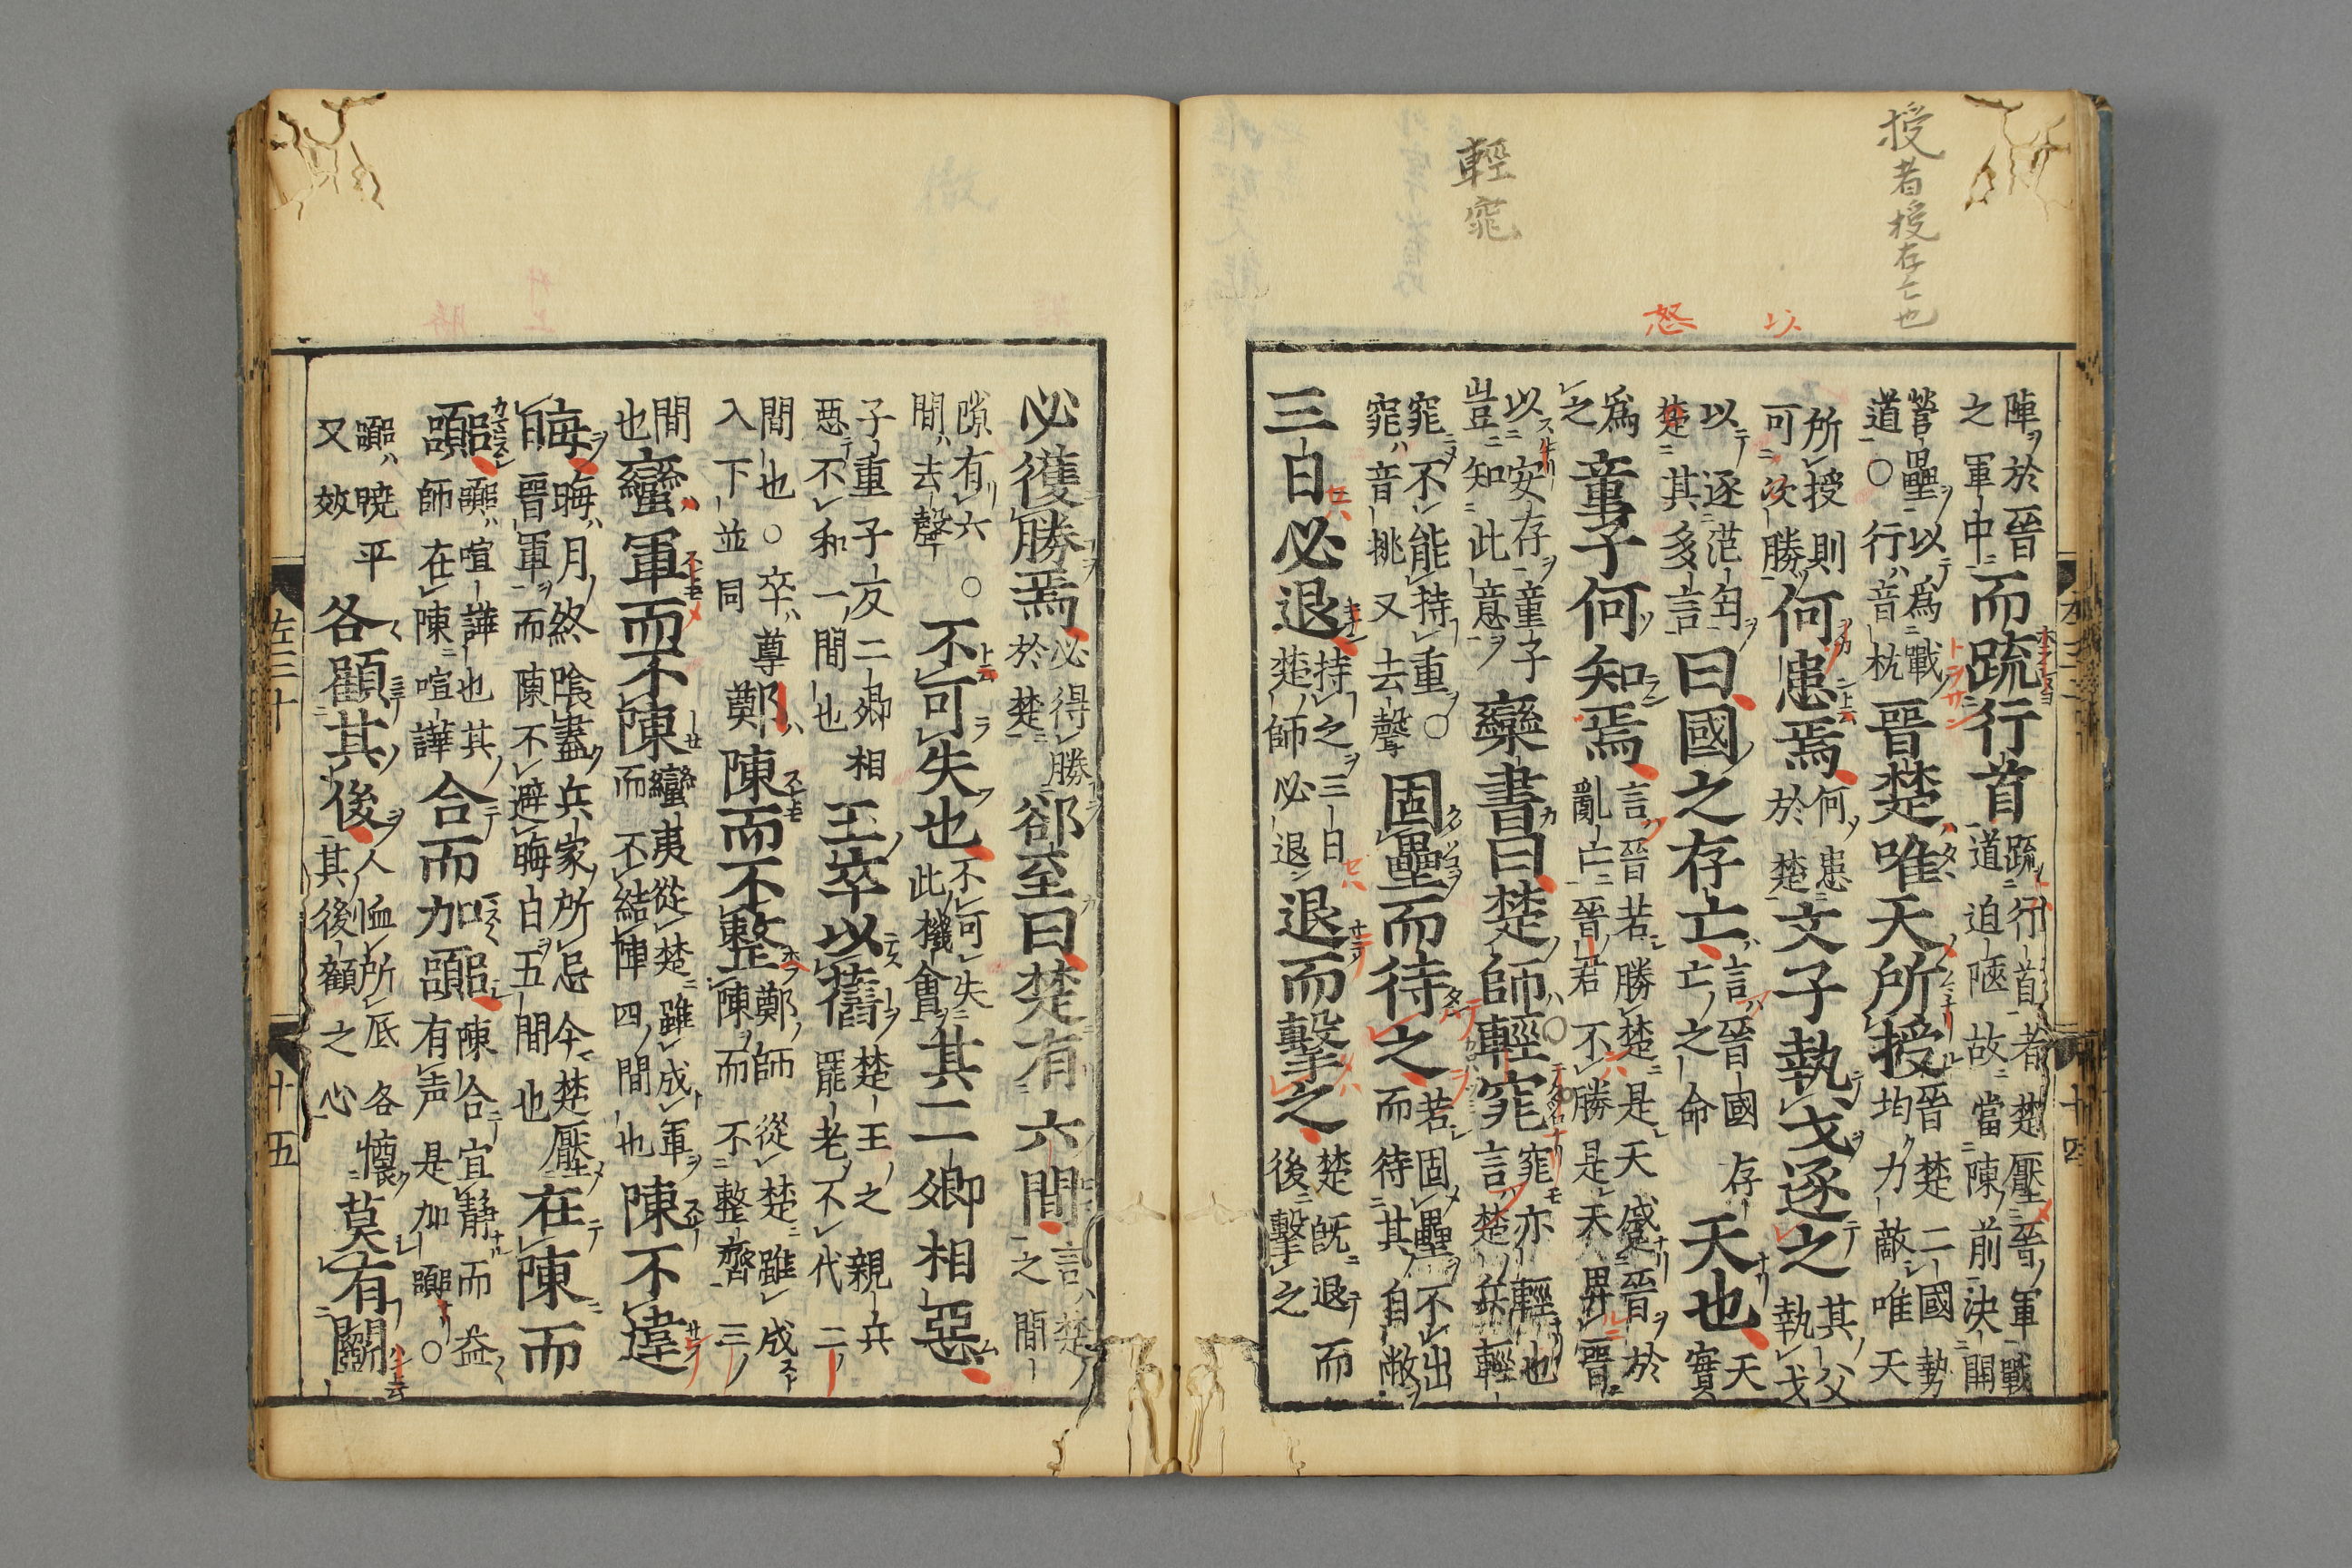 授者授存亡也
以
怒
輕窕
陣於晉
之軍中
而疏行首
疏行首者楚壓晉軍戰
道迫陿故當陳前決開
營壘以爲戰
道○行音杭
晉楚唯天所授
晉楚二國勢
均力敵唯天
所授則
可次勝
何患焉
何患
於楚
文子執戈逐之
其父
執戈
以逐范匄
楚其多言
曰國之存亡
言晉國存
亡之命
天也
天
實
爲
之
童子何知焉
言晉若勝楚是天盛晉於
亂亡晉若不勝是天畀晉
以安存童子
豈知此意
欒書曰楚師輕窕
窕亦輕也
言楚兵輕
窕不能持重○
窕音挑又去聲
固壘而待之
若固壘不出
而待其自敝
三日必退
持之三日
楚師必退
退而擊之
楚既退而
後擊之
必獲勝焉
必得勝
於楚
郤至曰楚有六間
言楚
之間
隙有六○
間去聲
不可失也
不可失
此機會
其二卿相惡
子重子反二卿相
惡不和一間也
王卒以舊
楚王之親兵
罷老不代二
間也○卒尊
入下並同
鄭陳而不整
鄭師從楚雖成
陳而不整齊三
間
也
蠻軍而不陳
蠻夷從楚雖成軍
而不結陣四間也
陳不違
晦
晦月終陰盡兵家所忌今楚壓
晉軍而陳不避晦日五間也
在陳而
囂
囂喧譁也其
師在陳喧譁
合而加囂
陳合宜静而益
有声是加囂○
囂暁平
又效
各顧其後
人恤所底各懷
其後顧之心
莫有鬬
左三十
十五